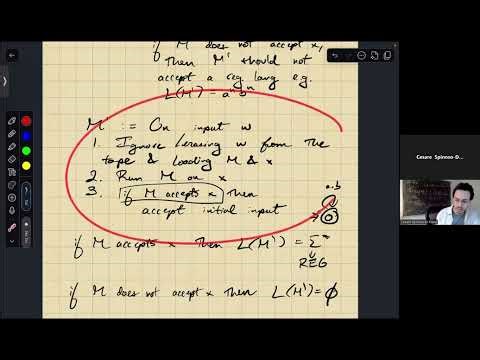 if M does not accept x,
then M' should not
accept a reg lang e.g.
L(M') = aⁿbⁿ
M' := On input w
1. Ignore/erasing w from the
tape & loading M & x
2. Run M on x
3. if M accepts x then
accept initial input
a,b
if M accepts x then L(M') = Σ*
REG
if M does not accept x then L(M') = ϕ
Cesare Spinoso-D...